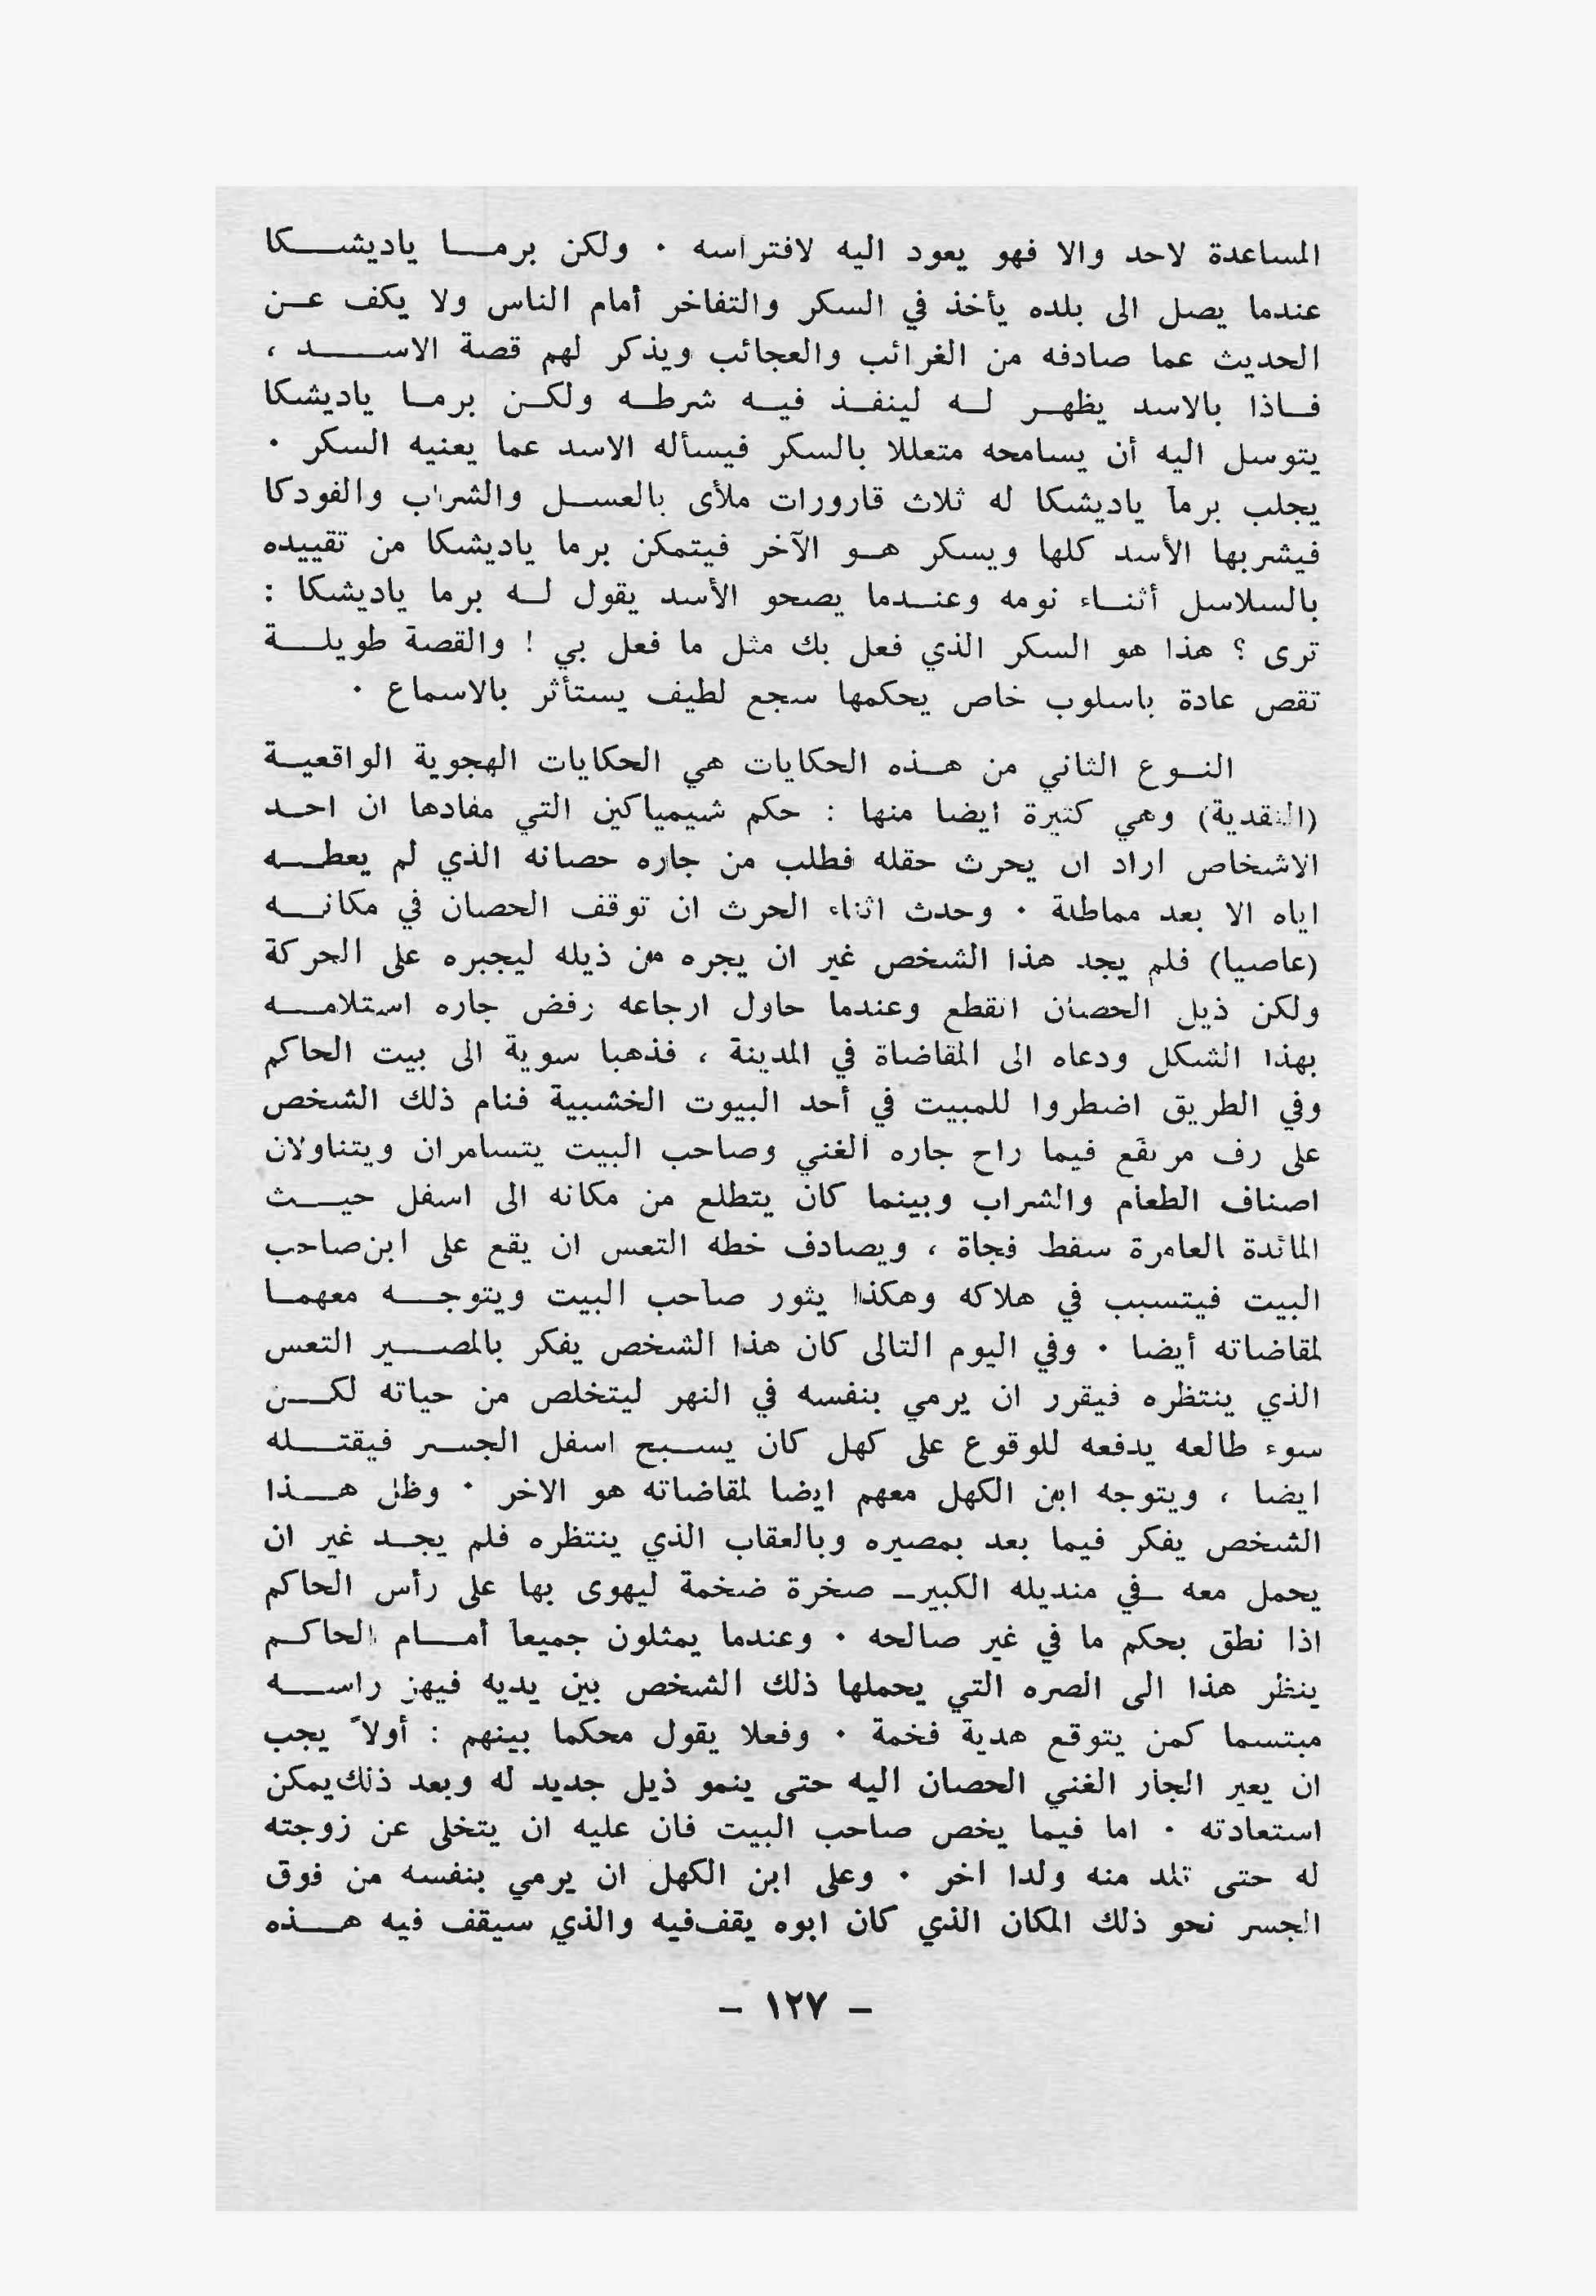 المساعدة لاحد والا فهو يعود اليه لافتراسه . ولكن برمـــا ياديشـــكا
عندما يصل الى بلده يأخذ في السكر والتفاخر أمام الناس ولا يكف عــن
الحديث عما صادفه من الغرائب والعجائب ويذكر لهم قصة الاســــد ،
فــاذا بالاسد يظهــر لــه لينفــذ فيــه شرطــه ولكــن برمــا ياديشكا
يتوسل اليه أن يسامحه متعللا بالسكر فيسأله الاسد عما يعنيه السكر .
يجلب برما ياديشكا له ثلاث قارورات ملأى بالعســل والشراب والفودكا
فيشربها الأسد كلها ويسكر هــو الآخر فيتمكن برما ياديشكا من تقييده
بالسلاسل أثنــاء نومه وعنــدما يصحو الأسد يقول لــه برما ياديشكا :
ترى ؟ هذا هو السكر الذي فعل بك مثل ما فعل بي ! والقصة طويلـــة
تقص عادة باسلوب خاص يحكمها سجع لطيف يستأثر بالاسماع .
النــوع الثاني من هــذه الحكايات هي الحكايات الهجوية الواقعيــة
(النقدية) وهي كثيرة ايضا منها : حكم شيمياكين التي مفادها ان احــد
الاشخاص اراد ان يحرث حقله فطلب من جاره حصانه الذي لم يعطـــه
اياه الا بعد مماطلة . وحدث اثناء الحرث ان توقف الحصان في مكانـــه
(عاصيا) فلم يجد هذا الشخص غير ان يجره من ذيله ليجبره على الحركة
ولكن ذيل الحصان انقطع وعندما حاول ارجاعه رفض جاره استلامـــه
بهذا الشكل ودعاه الى المقاضاة في المدينة ، فذهبا سوية الى بيت الحاكم
وفي الطريق اضطروا للمبيت في أحد البيوت الخشبية فنام ذلك الشخص
على رف مرتفع فيما راح جاره الغني وصاحب البيت يتسامران ويتناولان
اصناف الطعام والشراب وبينما كان يتطلع من مكانه الى اسفل حيــث
المائدة العامرة سقط فجاة ، ويصادف خطه التعس ان يقع على ابن صاحب
البيت فيتسبب في هلاكه وهكذا يثور صاحب البيت ويتوجـــه معهمــا
لمقاضاته أيضا . وفي اليوم التالى كان هذا الشخص يفكر بالمصـــير التعس
الذي ينتظره فيقرر ان يرمي بنفسه في النهر ليتخلص من حياته لكـــن
سوء طالعه يدفعه للوقوع على كهل كان يســبح اسفل الجســر فيقتـــله
ايضا ، ويتوجه ابن الكهل معهم ايضا لمقاضاته هو الاخر . وظل هـــذا
الشخص يفكر فيما بعد بمصيره وبالعقاب الذي ينتظره فلم يجــد غير ان
يحمل معه ــفي منديله الكبيرــ صخرة ضخمة ليهوى بها على رأس الحاكم
اذا نطق بحكم ما في غير صالحه . وعندما يمثلون جميعا أمـــام الحاكــم
ينظر هذا الى الصره التي يحملها ذلك الشخص بين يديه فيهز راســـه
مبتسما كمن يتوقع هدية فخمة . وفعلا يقول محكما بينهم : أولاً يجب
ان يعير الجار الغني الحصان اليه حتى ينمو ذيل جديد له وبعد ذلك يمكن
استعادته . اما فيما يخص صاحب البيت فان عليه ان يتخلى عن زوجته
له حتى تلد منه ولدا اخر . وعلى ابن الكهل ان يرمي بنفسه من فوق
الجسر نحو ذلك المكان الذي كان ابوه يقف فيه والذي سيقف فيه هـــذه
– ١٢٧ –